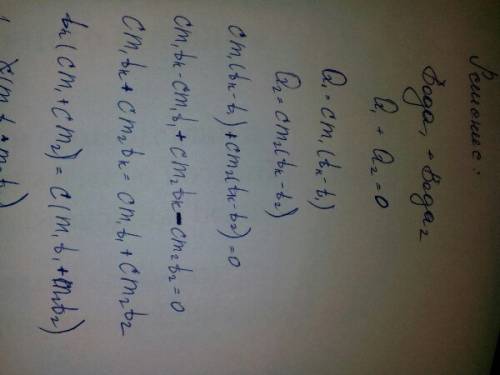 Решение:
Вода₁ + Вода₂
Q₁ + Q₂ = 0
Q₁ = cm₁(tк-t₁)
Q₂ = cm₂(tк-t₂)
cm₁(tк-t₁)+cm₂(tк-t₂)=0
cm₁tк-cm₁t₁+cm₂tк-cm₂t₂=0
cm₁tк+cm₂tк=cm₁t₁+cm₂t₂
tк(cm₁+cm₂)=c(m₁t₁+m₂t₂)